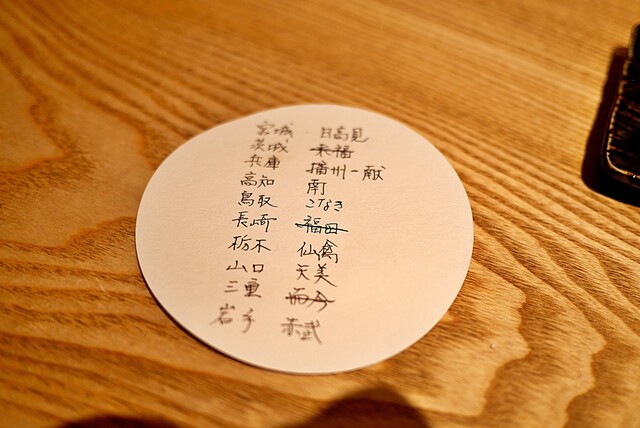 宮城 日高見
茨城 来福
兵庫 播州一献
高知 南
鳥取 こなき
長崎 福田
栃木 仙禽
山口 天美
三重 而今
岩手 赤武